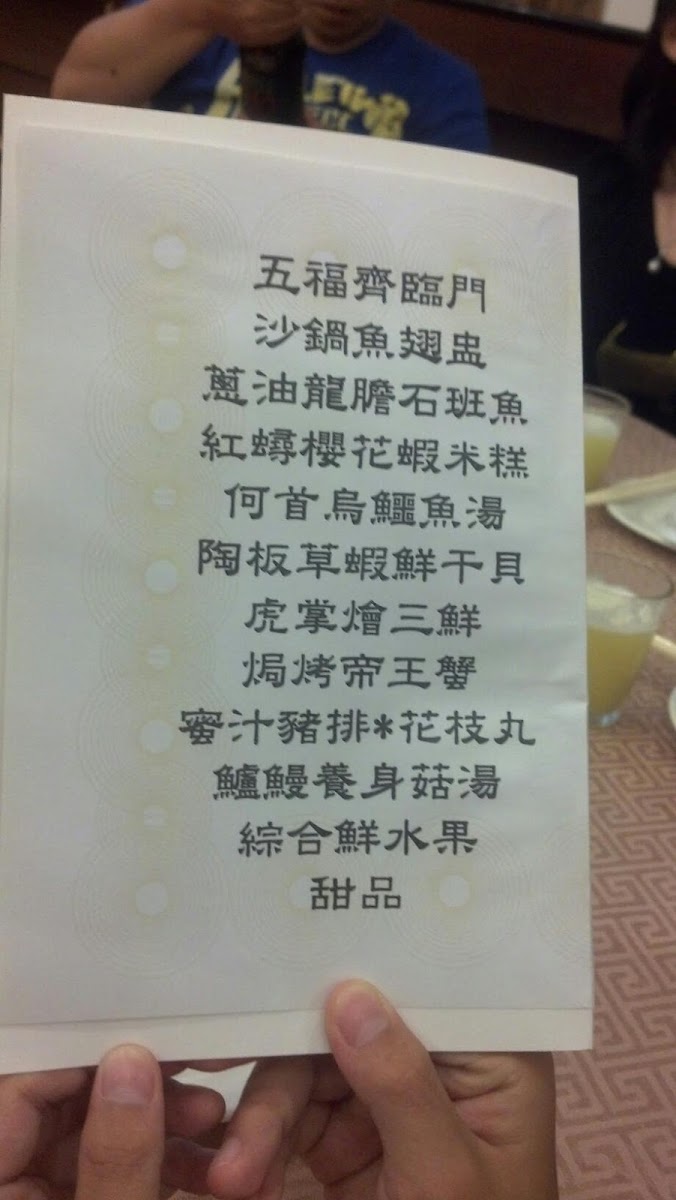 五福齊臨門
沙鍋魚翅盅
蔥油龍膽石班魚
紅蟳櫻花蝦米糕
何首烏鱷魚湯
陶板草蝦鮮干貝
虎掌燴三鮮
焗烤帝王蟹
蜜汁豬排*花枝丸
鱸鰻養身菇湯
綜合鮮水果
甜品